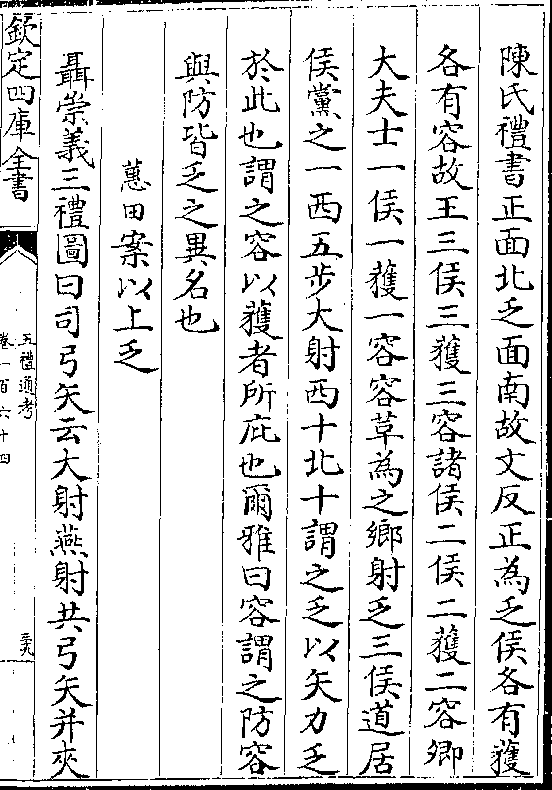 陳氏禮書正面北乏面南故文反正為乏侯各有獲
各有容故王三侯三獲三容諸侯二侯二獲二容卿
大夫士一侯一獲一容容草為之鄉射乏三侯道居
侯黨之一西五步大射西十北十謂之乏以矢力乏
於此也謂之容以獲者所庇也爾雅曰容謂之防容
與防皆乏之異名也
蕙田案以上乏
聶崇義三禮圖曰司弓矢云大射燕射共弓矢并夾
欽定四庫全書
五禮通考
卷一百六十四
三九